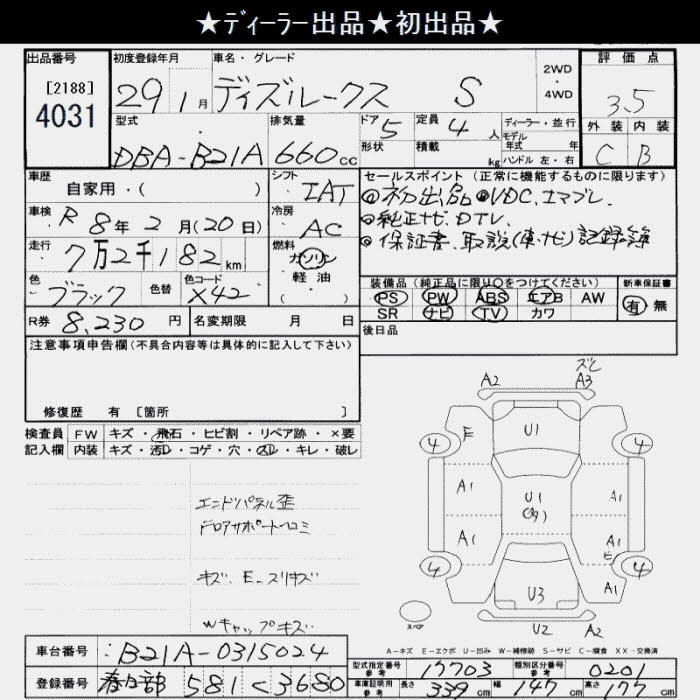 ★ディーラー出品★初出品★
出品番号 初度登録年月 車名・グレード 2WD 4WD 評価点
[2188] 4031 29年1月 デイズルークス S 3.5
型式 排気量 ドア 定員 ディーラー・並行 外装 内装
DBA-B21A 660cc 5 4人 モデル年式 年式 C B
形状 積載 kg ハンドル 左・右
車歴 シフト セールスポイント(正常に機能するものに限ります)
自家用・( ) IAT ◎初出品 ◎VDC.エマブレ.
車検 R8年2月(20日) 冷房 AC ●純正ナビ.DTV.
走行 7万2千182km 燃料 ガソリン ●保証書.取説(車・ナビ)記録簿
軽油
( )
色 ブラック 色替 色コード X42 装備品(純正品に限り○をつけてください) 新車保証書
PS PW ABS エアB AW 有 無
SR ナビ TV カワ
R券 8,230円 名変期限 月 日 後日品
注意事項申告欄(不具合内容等は具体的に記入して下さい)
修復歴 有 [箇所 ]
検査員 FW キズ・飛石・ヒビ割・リペア跡・×要
記入欄 内装 キズ・汚れ・コゲ・穴・スレ・キレ・破レ
A2 A3
4 E U1 4
A1 U1 A1
A1 A1
E
4 4
U3 A1
U2 A2
スペア
エンドパネル歪
ドロアサポートヘコミ
キズ、E-スリキズ
Wキャップキズ
A-キズ E-エクボ U-凹み W-補修跡 S-サビ C-腐食 XX-交換済
車台番号 B21A-0315024 型式指定番号 参考 17703 類別区分番号 参考 0201
登録番号 春日部 581 く 3680 車庫証明用 参考 長さ 339cm 幅 147cm 高さ 177cm